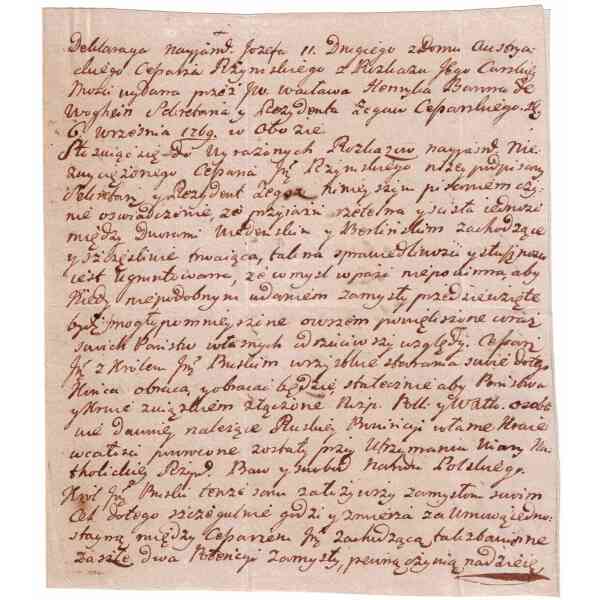 Deklaracya nayjaśń. Jozefa II. Drugiego z Domu Austrya-
ckiego Cesarza Rzymskiego z Rozkazu Jego Carskiey
Mości wydana przez Jw. Wacława Henryka Barona de
Woghein Sekretarza y Prezydenta Legacyi Cesarskiey
6. Września 1769. w Obozie
Stosuiąc się Do Wyrażonych Rozkazow nayjaśń. Nie-
zwyciężonego Cesarza Jmć Rzymskiego niżey podpisany
Sekretarz y Prezydent Legac. ninieyszym pismem czy-
ni oswiadczenie, że przyiaźń rzetelna y ścisła iedność
między Dworami Wiedeńskim y Berlińskim zachodzące
y szczęśliwie trwaiąca, tak na sprawiedliwości y
iest ugruntowana, że w myśl wpaść niepowinna aby
kiedy niepodobnym udaniem zamysły przedsiewzięte
być mogły pomnieyszone owszem powiększone
swoich Państw własnych odrzuciwszy względy. Cesarz
Jmć z Krolem Jmć Pruskim wszystkie starania swoie do tego
Końca obraca, y obracać będzie statecznie aby Państwa
y Kraie związkiem złączone Rzp. Poll. y W. osobli-
wie dawniey należące Ruskiey Prowincyi własne Kraie
wcałości powrocone zostały przy Utrzymaniu Wiary Ka-
tholickiey Rzymś. Praw y swobod Narodu Polskiego.
Krol Jmć Pruski tenże sam założywszy zamysłom swoim
Cel dotego szczegulnie godzi y zmierza za Umową iedno-
stayną między Cesarzem Jmć zachodzącą tak zbawienne
zaszłe dwa Potencyi zamysły, pewną czynią nadzieię,